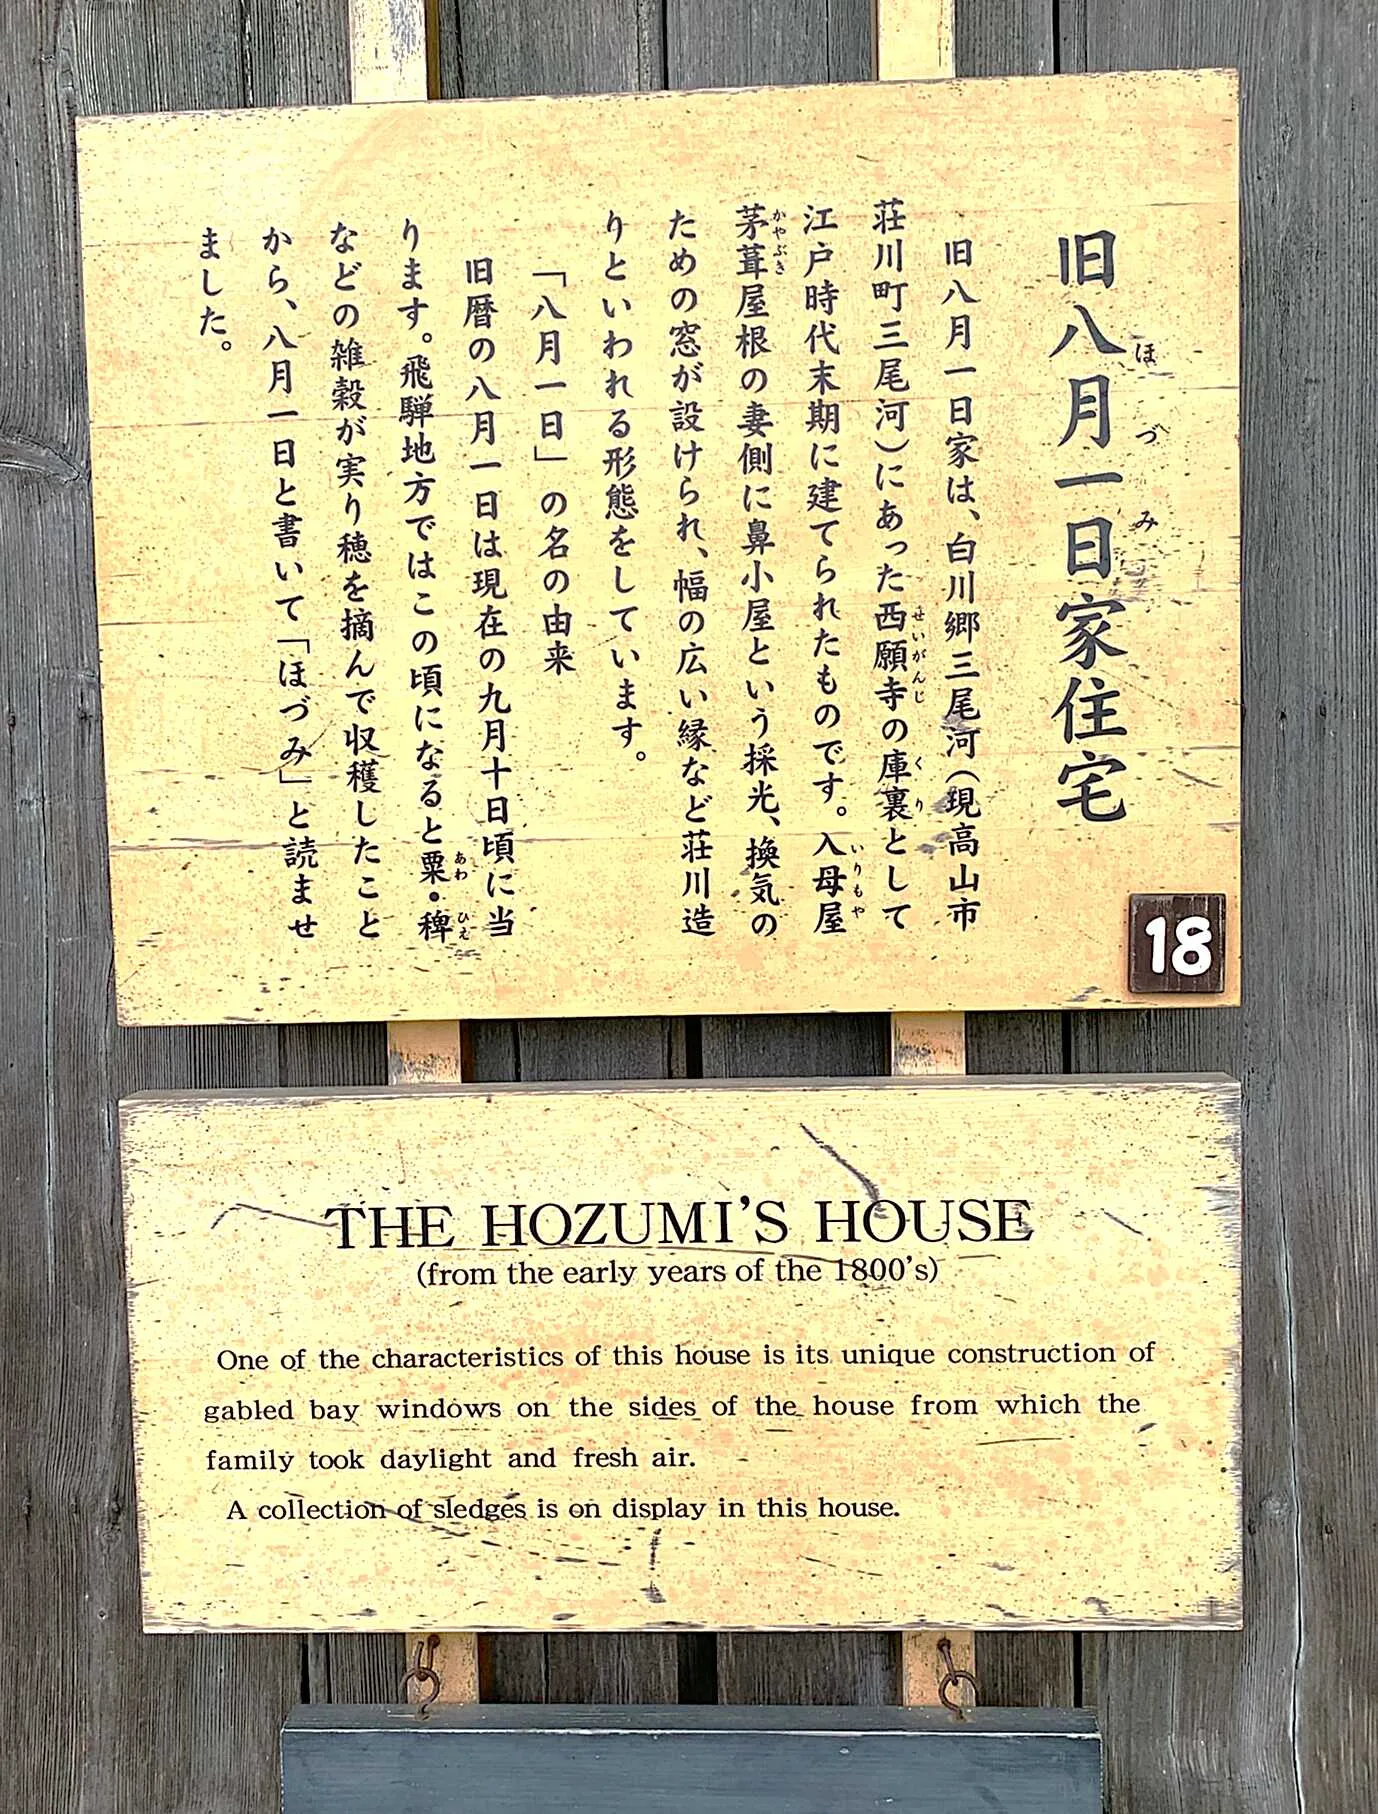 旧八月一日家住宅
ほづみ
旧八月一日家は、白川郷三尾河（現高山市
荘川町三尾河）にあった西願寺の庫裏として
せいがんじ
くり
江戸時代末期に建てられたものです。入母屋
いりもや
茅葺屋根の妻側に鼻小屋という採光、換気の
かやぶき
ための窓が設けられ、幅の広い縁など荘川造
りといわれる形態をしています。
「八月一日」の名の由来
旧暦の八月一日は現在の九月十日頃に当
ります。飛騨地方ではこの頃になると粟・稗
あわ
ひえ
などの雑穀が実り穂を摘んで収穫したこと
から、八月一日と書いて「ほづみ」と読ませ
ました。
18
THE HOZUMI'S HOUSE
(from the early years of the 1800's)
One of the characteristics of this house is its unique construction of
gabled bay windows on the sides of the house from which the
family took daylight and fresh air.
A collection of sledges is on display in this house.